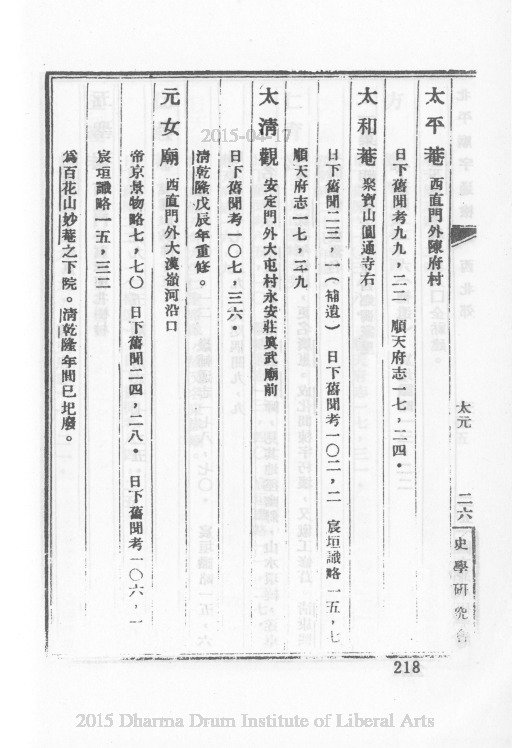 太平菴 西直門外陳府村
日下舊聞考九九，二二 順天府志一七，二四。
太和菴 聚寶山圓通寺右
日下舊聞二三，一（補遺） 日下舊聞考一〇二，二 宸垣識略一五，七
順天府志一七，二九
太清觀 安定門外大屯村永安莊眞武廟前
日下舊聞考一〇七，三六。
清乾隆戊辰年重修。
元女廟 西直門外大漢嶺河沿口
帝京景物略七，七〇 日下舊聞二四，二八。 日下舊聞考一〇六，一
宸垣識略一五，三二
爲百花山妙菴之下院。清乾隆年間已圯廢。
太元 二六 史學研究會
218
2015-04-17
2015 Dharma Drum Institute of Liberal Arts